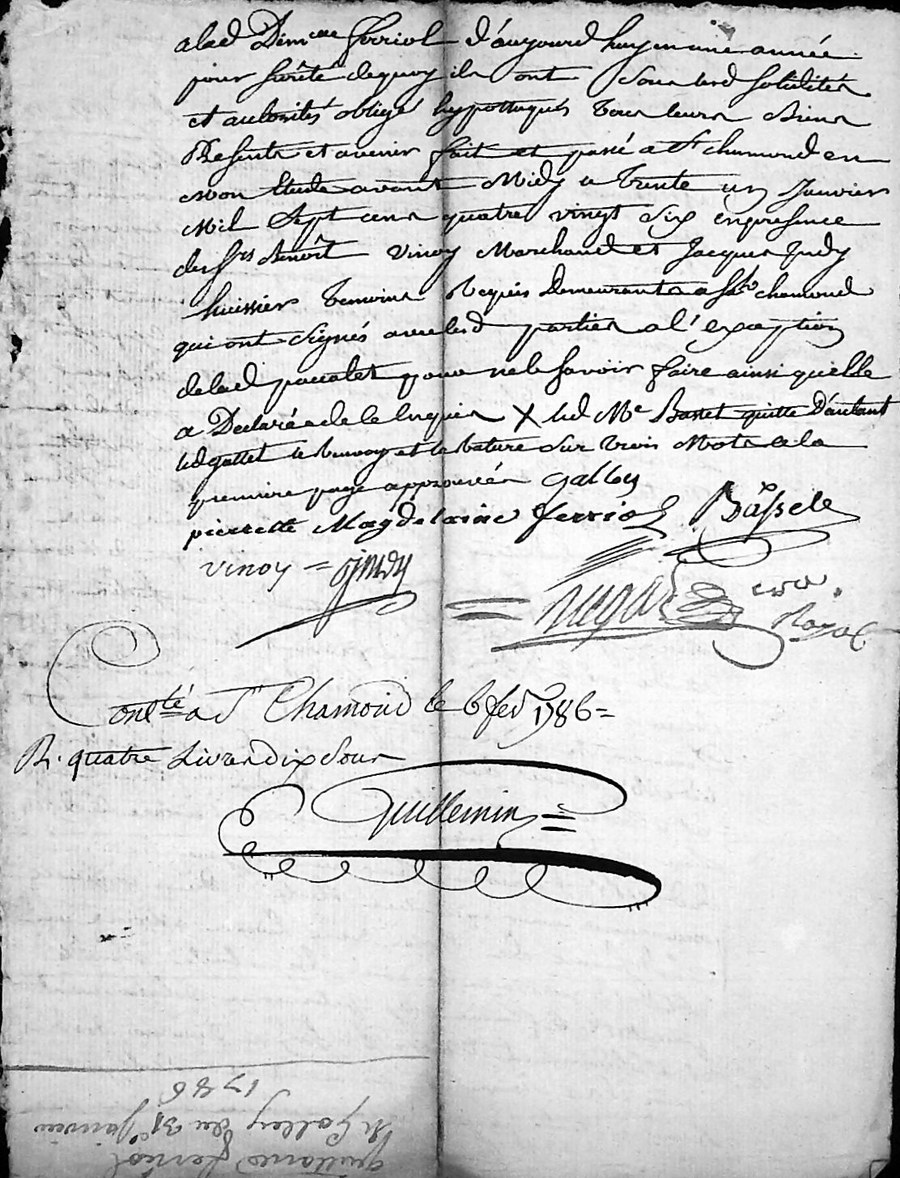 a lad Dem.elle ferriol d'aujourd'huy en une année
pour sureté dequoy ils ont sous lesd solidités
et autorités obligé hypotteques tous leurs Biens
Presents et avenir fait et passé a St chamond en
mon Etude avant Midy le trente un Janvier
Mil Sept cens quatre vingt Six en presence
des Srs Benoît Vinoy Marchand et Jacques Judy
huissier temoins Requis Demeurants a St chamond
qui ont Signés avec lesd parties a l'exception
de lad pour ne le Savoir faire ainsi quelle
a Declaré de ce Enquise X led Me Basset quitte D'autant
led gallet le Renvoy et la Rature Sur trois Mots a la
premiere page approuvés Galley
pierrette Magdelaine ferriol Bassete
vinoy = Judy
Royal
Conté a St Chamond le 6 fev 1786 =
R. quatre Livres dix Sous
Guillemin
quittance ferriol
a Galley du 31e Janvier
1786